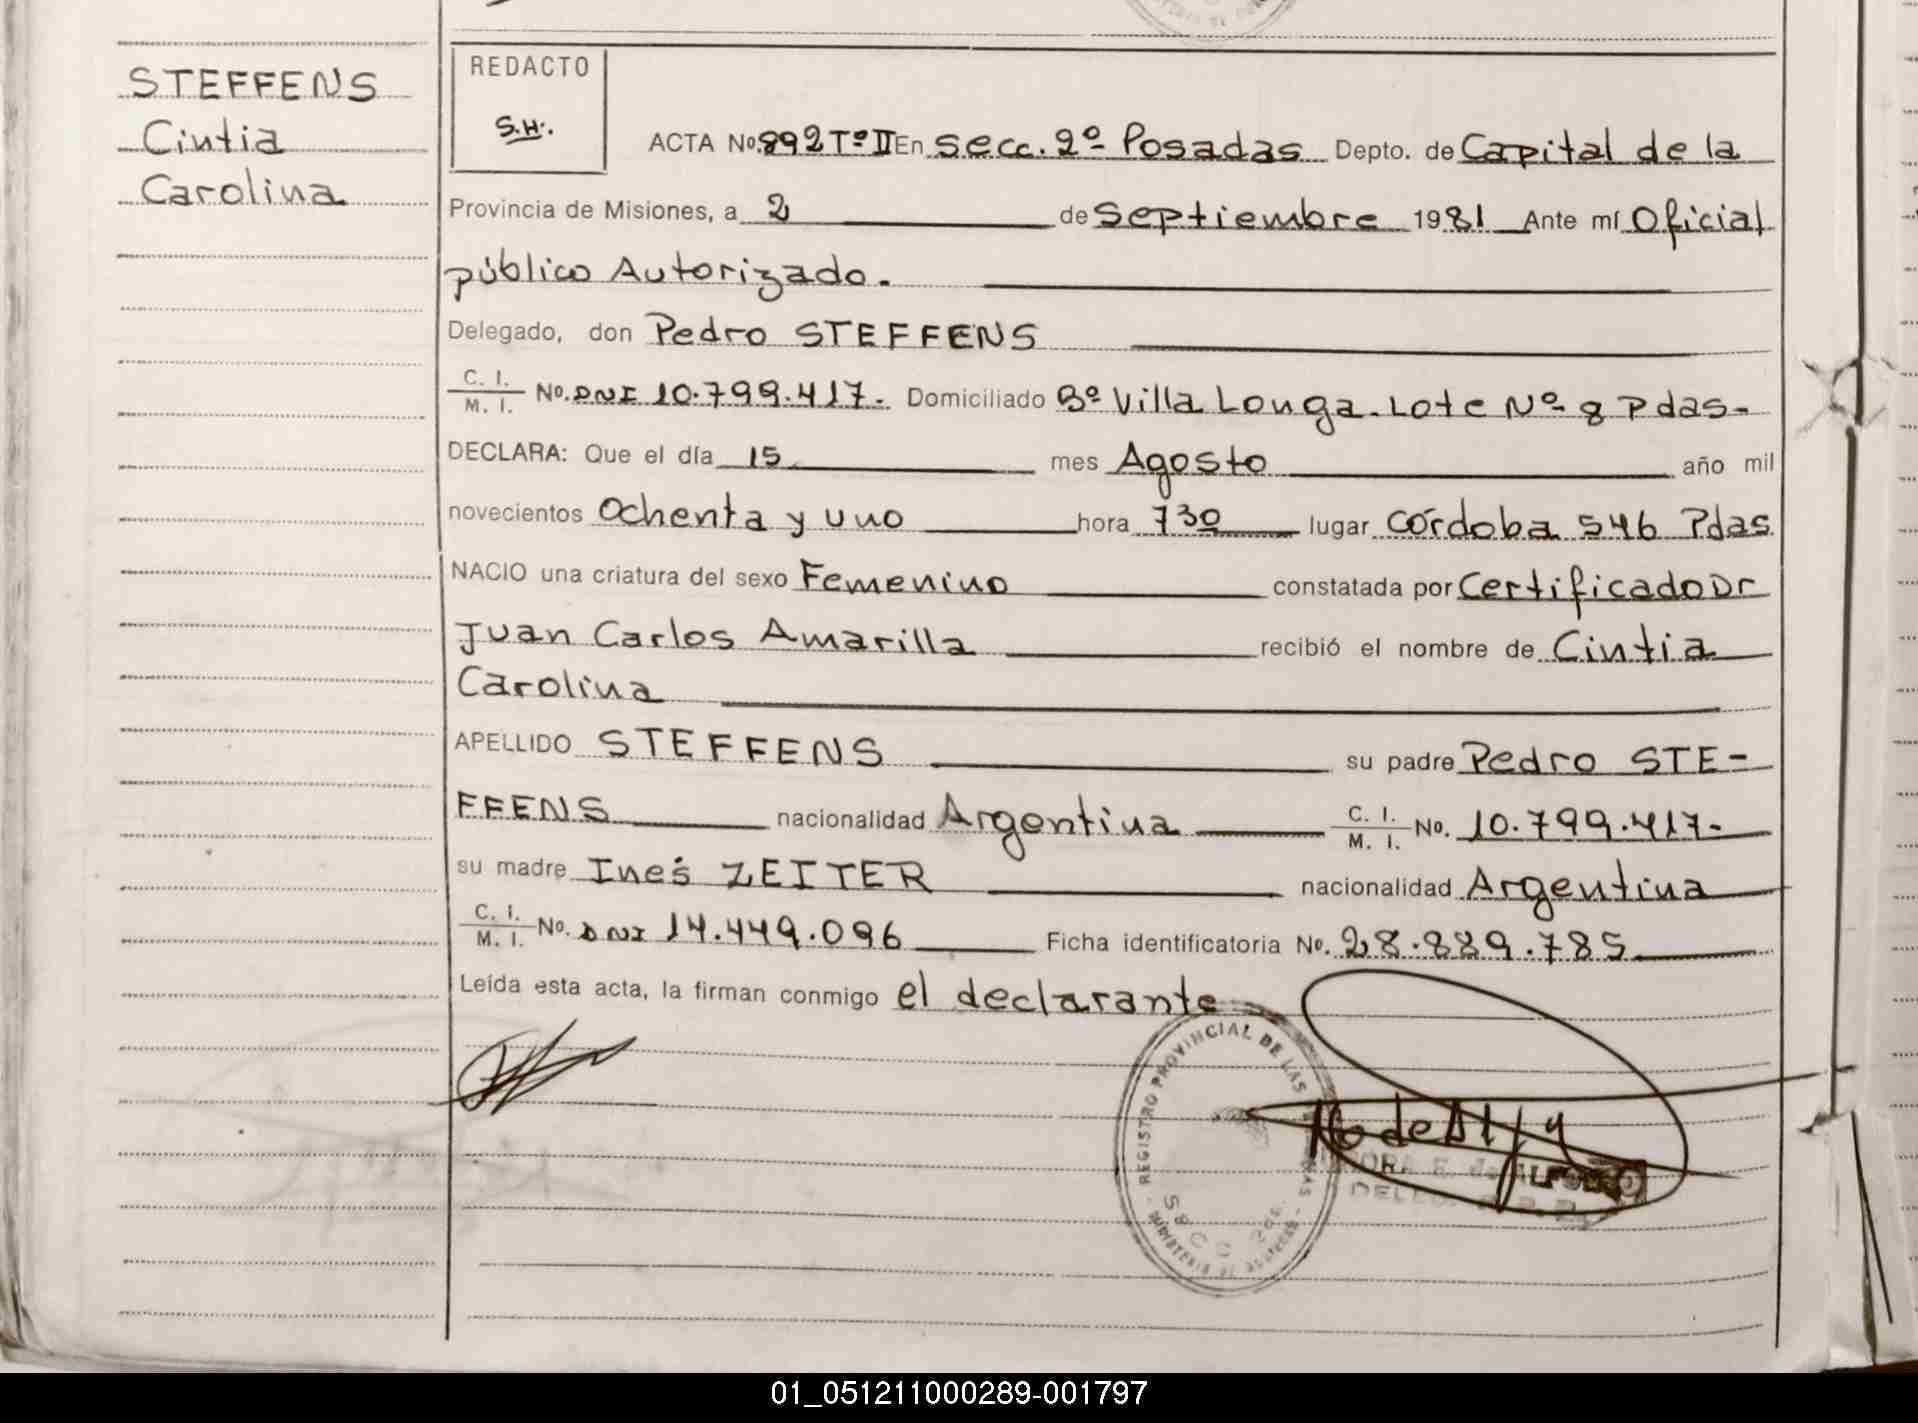 STEFFENS
Cintia
Carolina
REDACTO
S.H.
ACTA No. 892 Tº II En Secc. 2º Posadas Depto. de Capital de la
Provincia de Misiones, a 2 de Septiembre 1981 Ante mí Oficial
público Autorizado.
Delegado, don Pedro STEFFENS
C. I. / M. I. No. DNI 10.799.417. Domiciliado Bº Villa Longa. Lote Nº 8 Pdas-
DECLARA: Que el día 15 mes Agosto año mil
novecientos Ochenta y uno hora 730 lugar Córdoba 546 Pdas.
NACIO una criatura del sexo Femenino constatada por Certificado Dr
Juan Carlos Amarilla recibió el nombre de Cintia
Carolina
APELLIDO STEFFENS su padre Pedro STE-
FFENS nacionalidad Argentina C. I. / M. I. No. 10.799.417-
su madre Inés ZEITER nacionalidad Argentina
C. I. / M. I. No. DNI 14.449.096 Ficha identificatoria No. 28.889.785
Leída esta acta, la firman conmigo el declarante
REGISTRO PROVINCIAL DE LAS
01_051211000289-001797